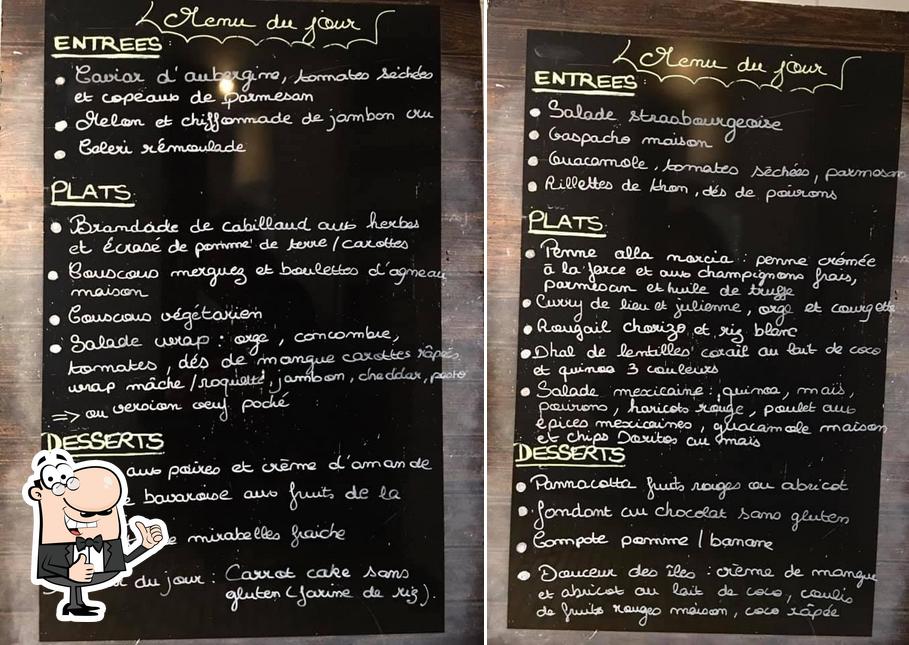 Menu du jour
ENTREES:
Caviar d'aubergine, tomates séchées
et copeaux de parmesan
Melon et chiffonnade de jambon cru
Celeri rémoulade
PLATS
Brandade de cabillaud aux herbes
et écrasé de pomme de terre / carottes
Couscous merguez et boulettes d'agneau
maison
Couscous végétarien
Salade wrap : orge, concombre,
tomates, dés de mangue carottes râpés,
wrap mâche / roquette jambon, cheddar, pesto
=> ou version oeuf poché
DESSERTS
aux poires et crème d'amande
bavaroise aux fruits de la
mirabelles fraiche
du jour : Carrot cake sans
gluten (farine de riz).
Menu du jour
ENTREES:
Salade strasbourgeoise
Gaspacho maison
Guacamole, tomates séchées, parmesan
Rillettes de thon, dés de poivrons
PLATS
Penne alla marcia : penne crémée
à la force et aux champignons frais,
parmesan et huile de truffe
Curry de lieu et julienne, orge et courgette
Rougail chorizo et riz blanc
Dhal de lentilles corail au lait de coco
et quinoa 3 couleurs
Salade mexicaine : quinoa, maïs,
poivrons, haricots rouge, poulet aux
épices mexicaines, guacamole maison
et chips Doritos au maïs
DESSERTS
Pannacotta fruits rouges ou abricot
fondant au chocolat sans gluten
Compote pomme / banane
Douceur des îles : crème de mangue
et abricot au lait de coco, coulis
de fruits rouges maison, coco râpée